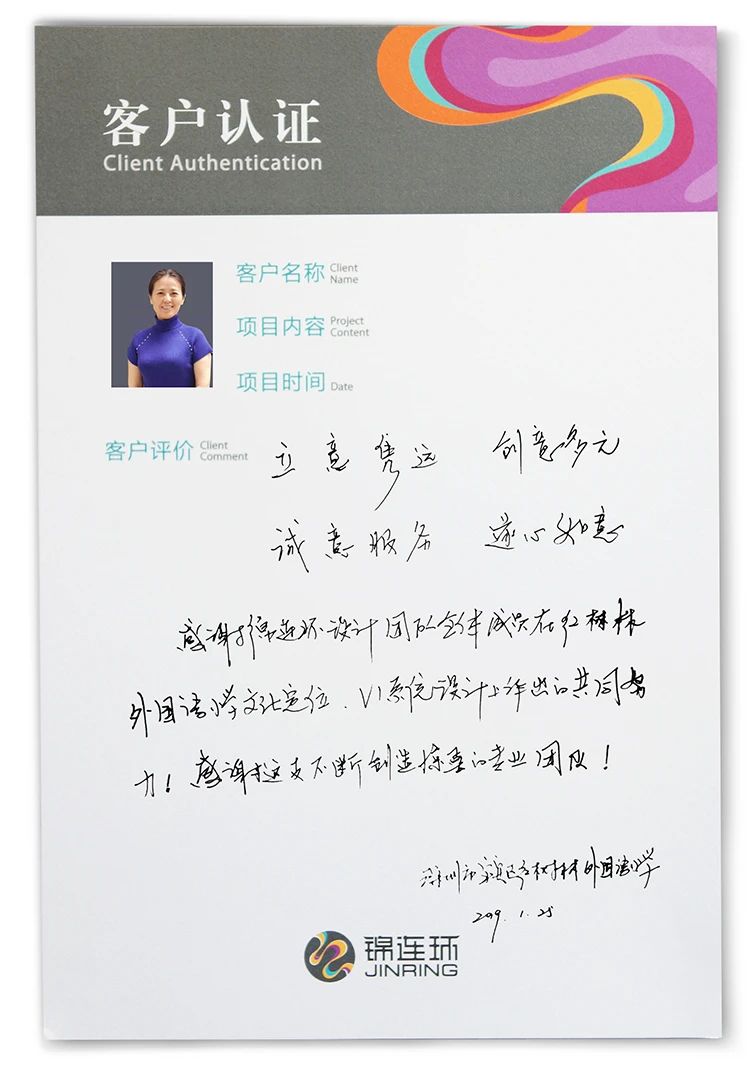 客户认证
Client Authentication
客户名称 Client Name
项目内容 Project Content
项目时间 Date
客户评价 Client Comment
立意隽远 创意多元
诚意服务 遂心如意
感谢锦连环设计团队全体成员在红树林
外国语小学文化定位、VI系统设计上作出的共同努
力！感谢这支不断创造惊喜的专业团队！
深圳市 红树林外国语小学
2019.1.25
锦连环
JINRING